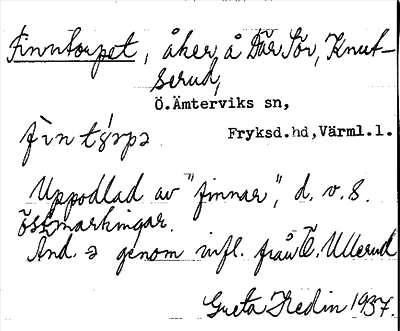 Finntorpet, åker å Där Sör, Knut-
serud,
Ö.Ämterviks sn,
Fryksd.hd, Värml.l.
Uppodlad av "finnar", d. v. s.
östmarkingar.
And. ə genom infl. från Ö. Ullerud
Greta Hedin 1937.